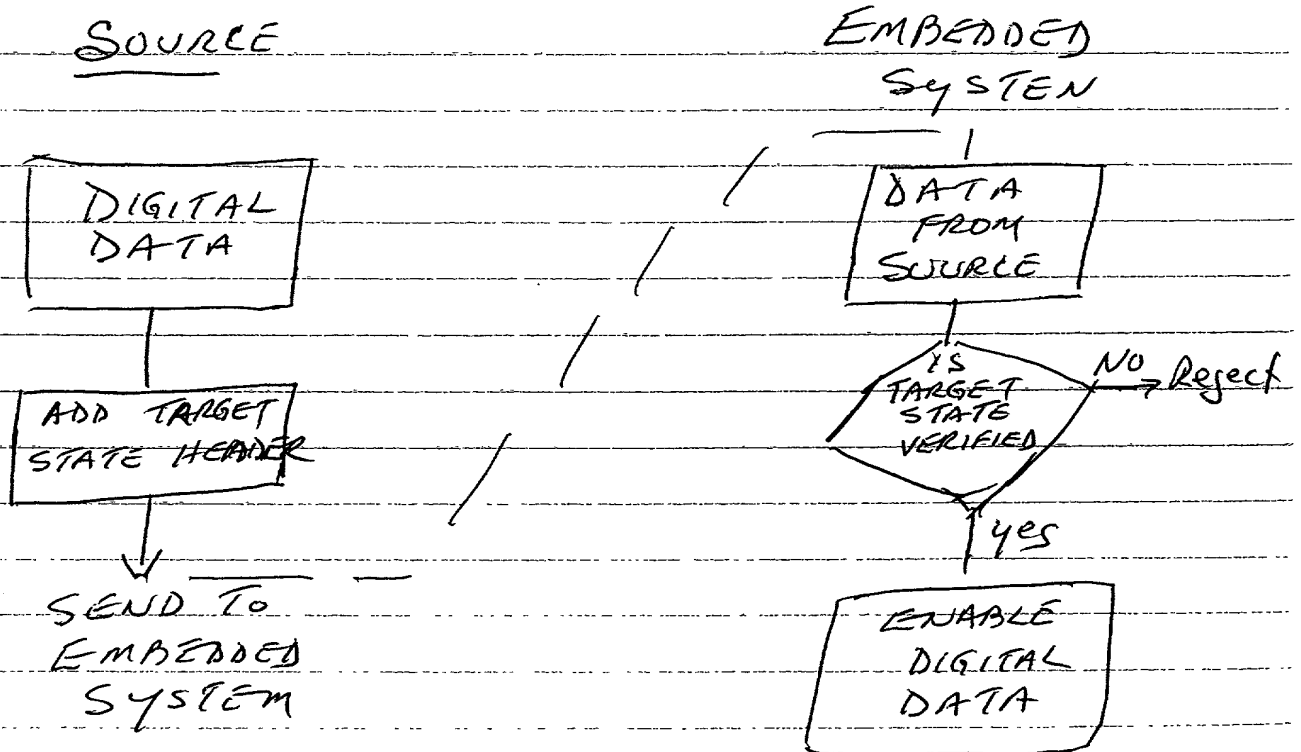 SOURCE
DIGITAL
DATA
ADD TARGET
STATE HEADER
SEND TO
EMBEDDED
SYSTEM
EMBEDDED
SYSTEN
DATA
FROM
SOURCE
IS
TARGET
STATE
VERIFIED
NO
Reject
yes
ENABLE
DIGITAL
DATA